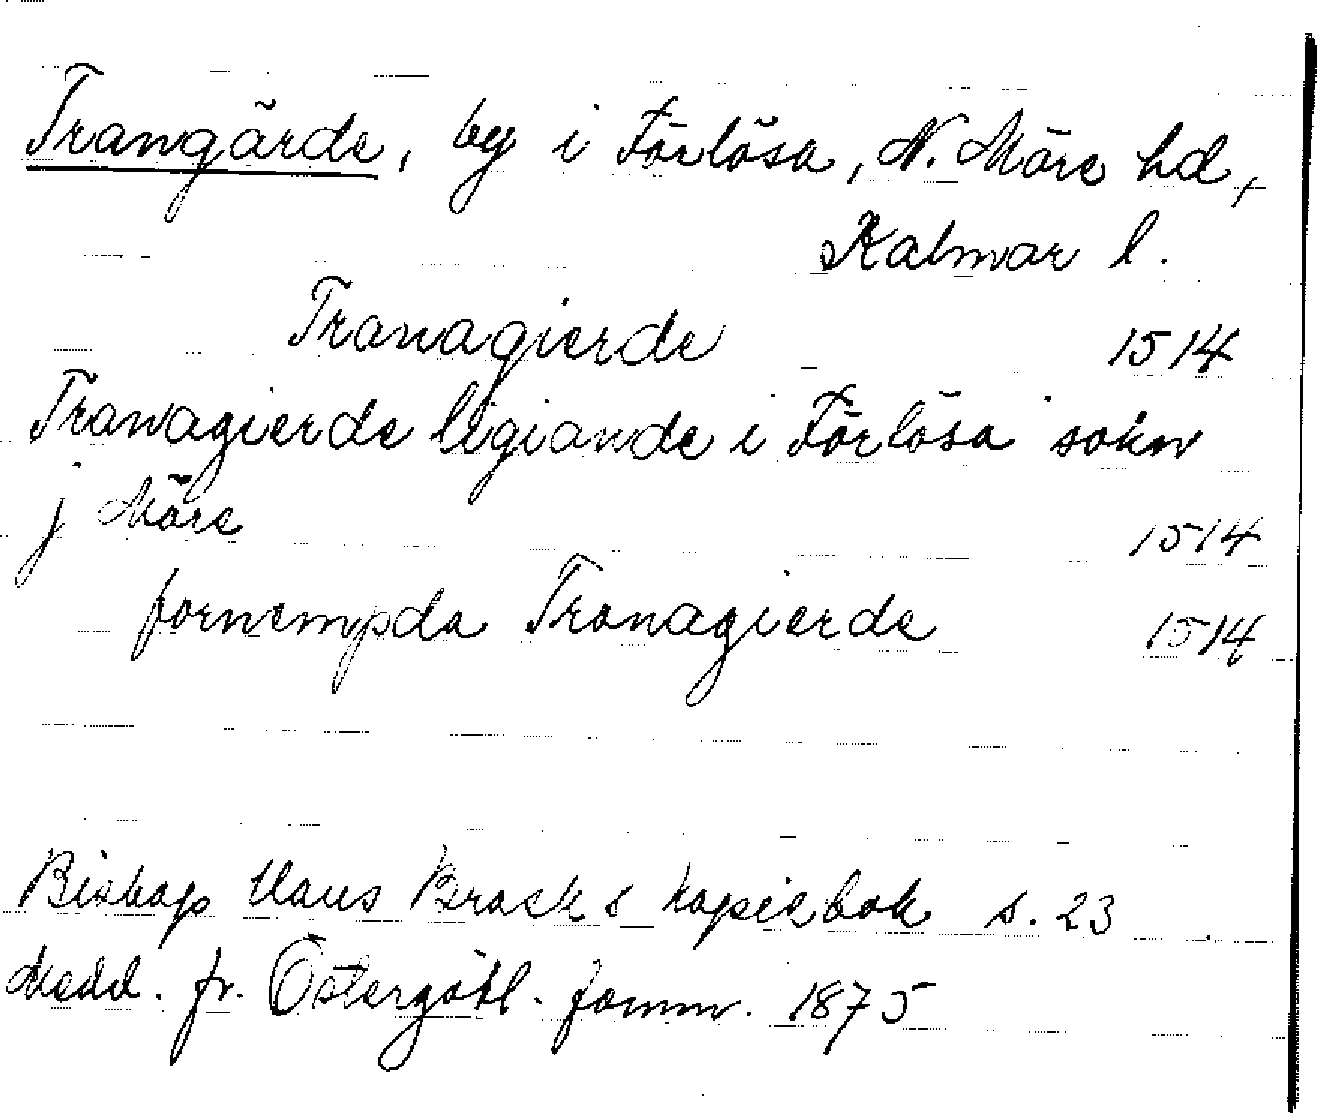 Trangärde, by i Förlösa, N. Möre hd,
Kalmar l.
Tranagierde 1514
Tranagierde ligiande i Förlösa sokn
j Möre 1514
fornempda Tranagierde 1514
Biskop Hans Brasks kopiebok s. 23
Medd. fr. Östergötl. fornm. 1875